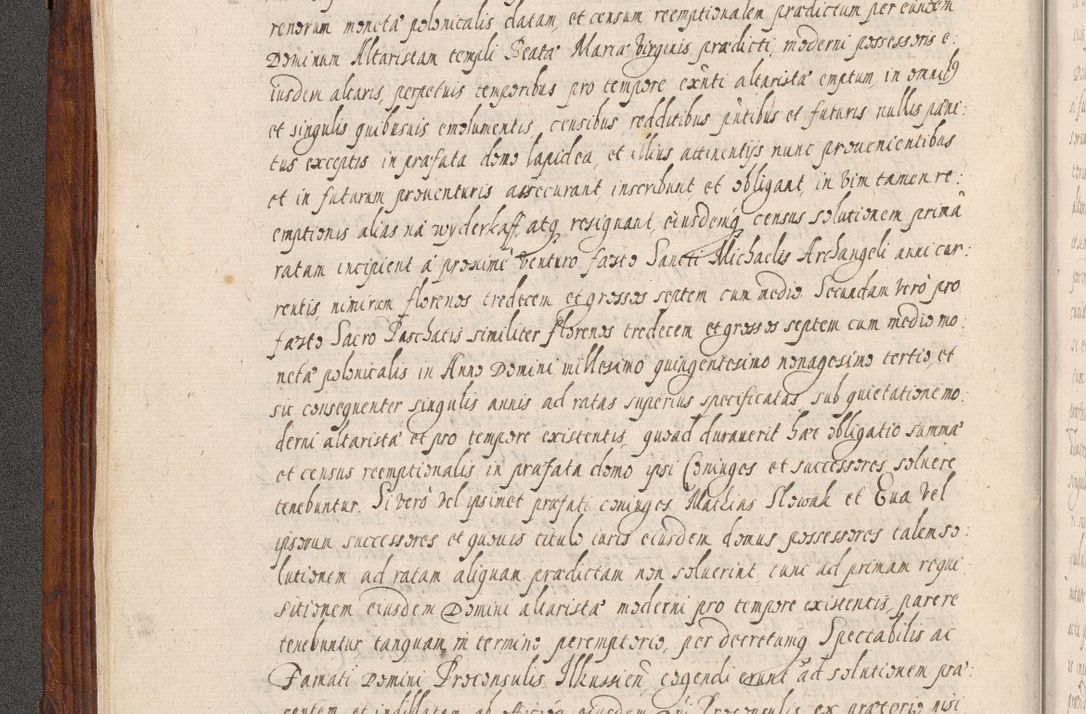 renorum moneta polonicalis datam, et censum reemptionalem prædictum per eundem
Dominum Altaristam templi Beatæ Mariæ Virginis prædicti moderni possessoris e:
iusdem altaris, perpetuis temporibus pro tempore exñti altaristæ emptum, in omnibꝰ
et singulis quibusuis emolumentis, censibus redditibus pñtibus et futuris nullis peni:
tus exceptis in præfata domo lapidea, et illius attinentijs nunc prouenientibus
et in futurum prouenturis assecurant, inscribunt et obligant, in vim tamen re:
emptionis alias na wyderkaff, atq, resignant, eiusdemq, census solutionem primã
ratam incipient à proxime venturo festo Sancti Michaelis Archangeli anni cur:
rentis, nimirum florenos tredecem et grossos septem cum medio. Secundam verò pro
festo Sacro Paschatis similiter florenos tredecem et grossos septem cum medio mo:
netæ polonicalis in Anno Domini millesimo quingentesimo nonagesimo tertio, et
sic consequenter singulis annis ad ratas superius specificatas sub quietatione mo:
derni altaristæ et pro tempore existentis, quoad durauerit hæc obligatio summæ
et census reemptionalis in præfata domo ipsi Coniuges et successores soluere
tenebuntur. Si verò vel ipsimet præfati coniuges Mathias Slowak et Eua vel
ipsorum successores et quouis titulo iuris eiusdem domus possessores talem so:
lutionem ad ratam aliquam prædictam non soluerint, tunc ad primam requi
sitionem eiusdem Domini altaristæ moderni pro tempore existentis, parere
tenebuntur tanquam in termino peremptorio, per decretumq Spectabilis ac
Famati Domini Proconsulis Ilkussieñ cogendi erunt ad solutionem præ:
sentem et indillatam ab officio eiusdem Dñi Proconsulis ex prætorio nisi